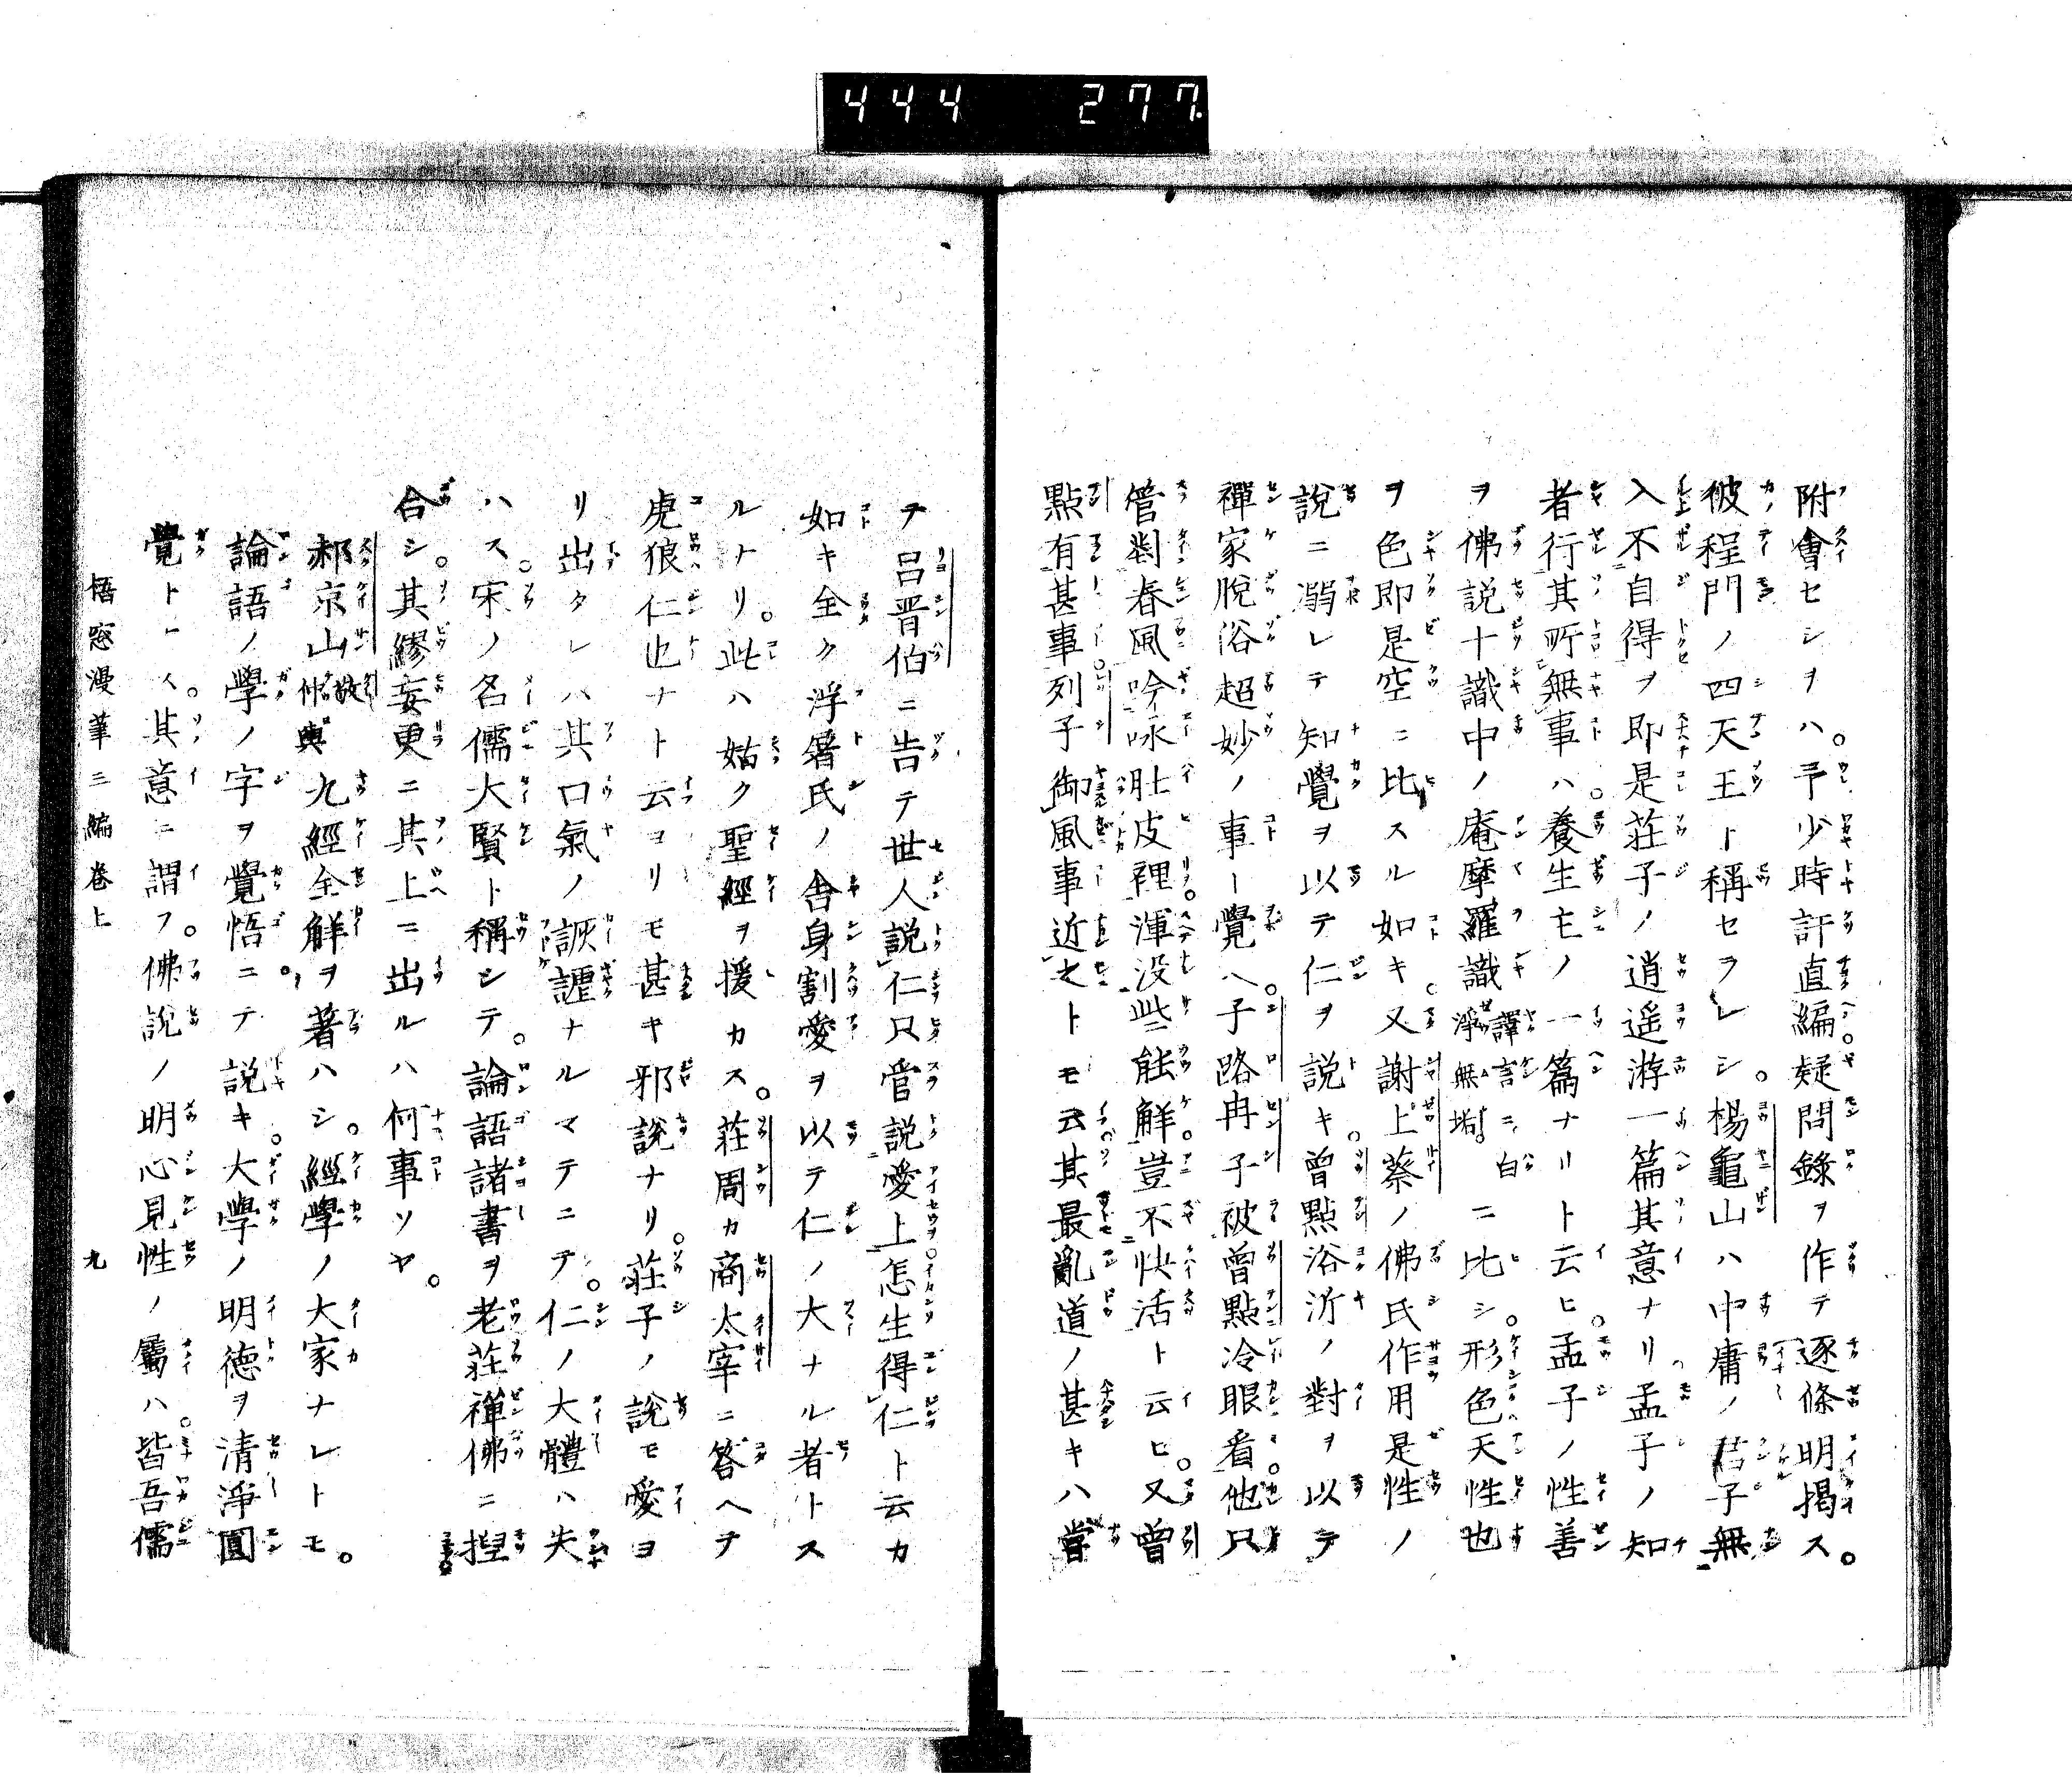 444 277
附會セシヲハ。予少時訐直編疑問錄ヲ作テ逐條明揭ス。
彼程門ノ四天王ト稱セラレシ。楊龜山ハ中庸ノ君子無
入不自得ヲ即是莊子ノ逍遥游一篇其意ナリ孟子ノ知
者行其所無事ハ養生主ノ一篇ナリト云ヒ。孟子ノ性善
ヲ佛說十識中ノ庵摩羅識譯言ニ白淨無垢。ニ比シ。形色天性也
ヲ色即是空ニ比スル如キ。又謝上蔡ノ佛氏作用是性ノ
說ニ溺レテ知覺ヲ以テ仁ヲ説キ。曾點浴沂ノ對ヲ以テ
禪家脫俗超妙ノ事ト覺ヘ。子路冉子被曾點冷眼看。他只
管對春風吟咏肚皮裡渾没些能解。豈不快活ト云ヒ。又曾
點有甚事。列子御風事近之トモ云。其最亂道ノ甚キハ嘗
テ呂晋伯ニ告テ世人說仁只管説愛上怎生得仁ト云カ
如キ全ク浮屠氏ノ舎身割愛ヲ以テ仁ノ大ナル者トス
ルナリ。此ハ姑ク聖經ヲ援カス。莊周カ商太宰ニ答ヘテ
虎狼仁也ナト云ヨリモ甚キ邪說ナリ。莊子ノ說モ愛ヨ
リ出タレハ其口氣ノ詼謔ナルマテニテ。仁ノ大體ハ失
ハス。宋ノ名儒大賢ト稱シテ。論語諸書ヲ老莊禪佛ニ揑
合シ。其繆妄更ニ其上ニ出ルハ何事ソヤ。
郝京山敬仲輿九經全解ヲ著ハシ。經學ノ大家ナレトモ。
論語ノ學ノ字ヲ覺悟ニテ説キ。大學ノ明德ヲ清淨圓
覺トトク。其意ニ謂フ。佛說ノ明心見性ノ屬ハ。皆吾儒
梧窓漫筆三編卷上 九